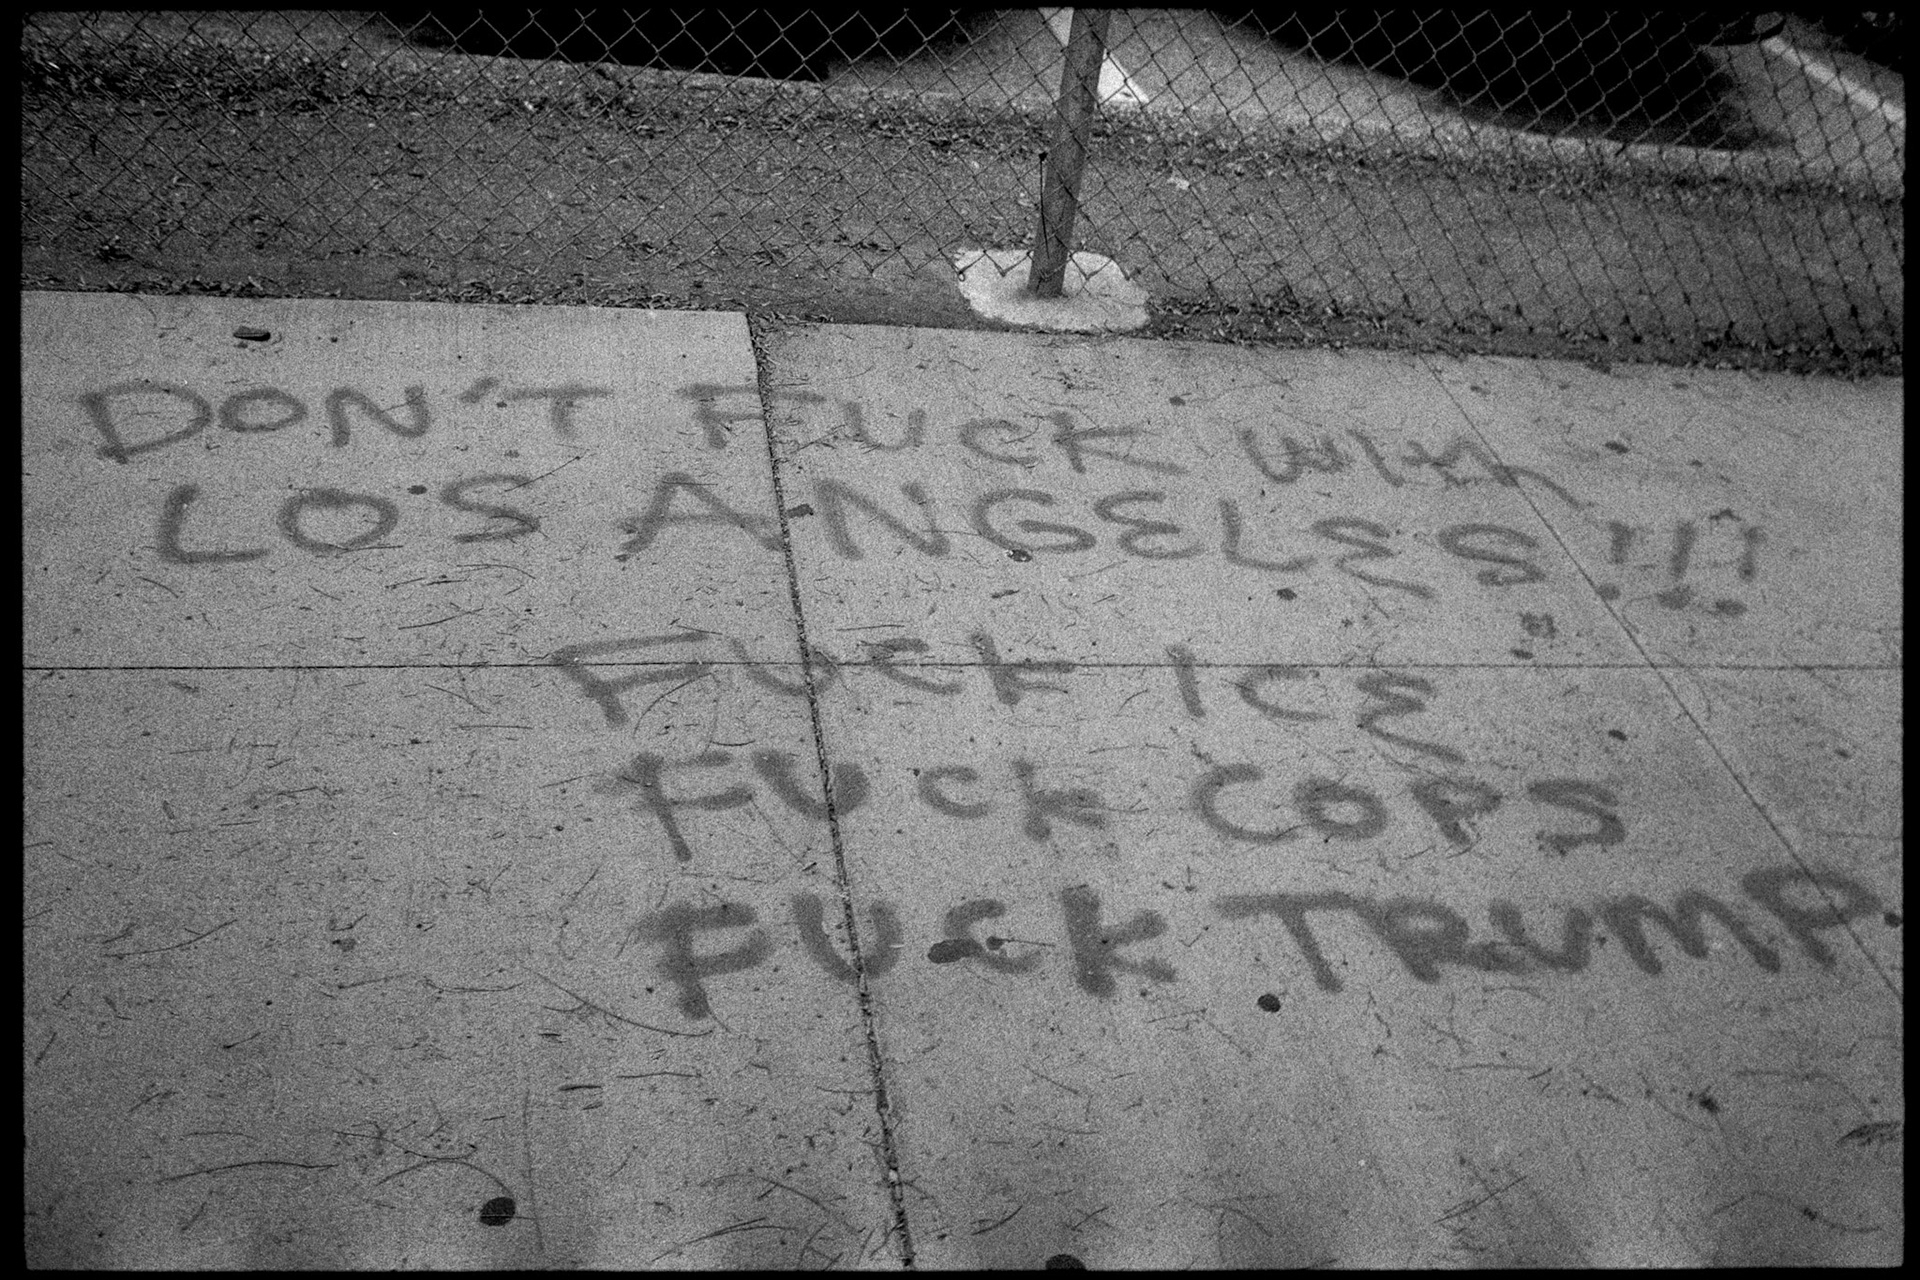 DON'T FUCK WITH
LOS ANGELES!!!
FUCK ICE
FUCK COPS
FUCK TRUMP